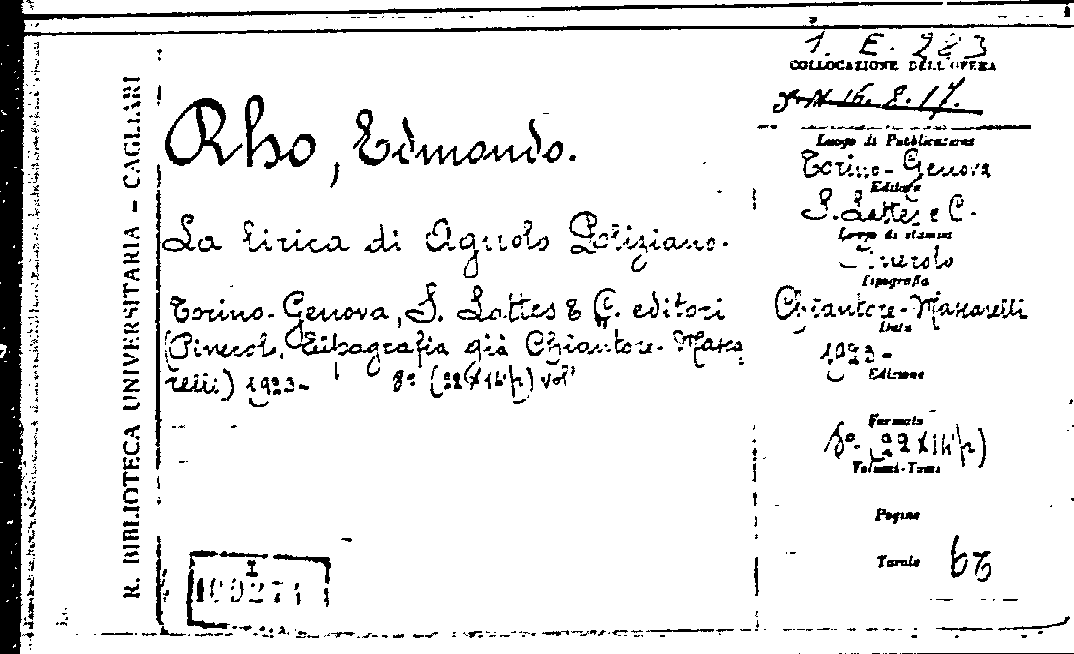 R. BIBLIOTECA UNIVERSITARIA - CAGLIARI
Rho, Edmondo.
La lirica di Agnolo Poliziano.
Torino-Genova, S. Lattes & C. editori
(Pinerolo, Tipografia già Chiantore-Masca
relli) 1923- 8º (22 X 14½) vol
I
100271
1. E. 283
COLLOCAZIONE DELL'OPERA
16. 8. 17.
Luogo di Pubblicazione
Torino-Genova
Editore
S. Lattes e C.
Luogo di stampa
Pinerolo
Tipografia
Chiantore-Mascarelli
Data
1923-
Edizione
Formato
8º. (22 X 14½)
Volumi-Tomi
Pagine
Tavole